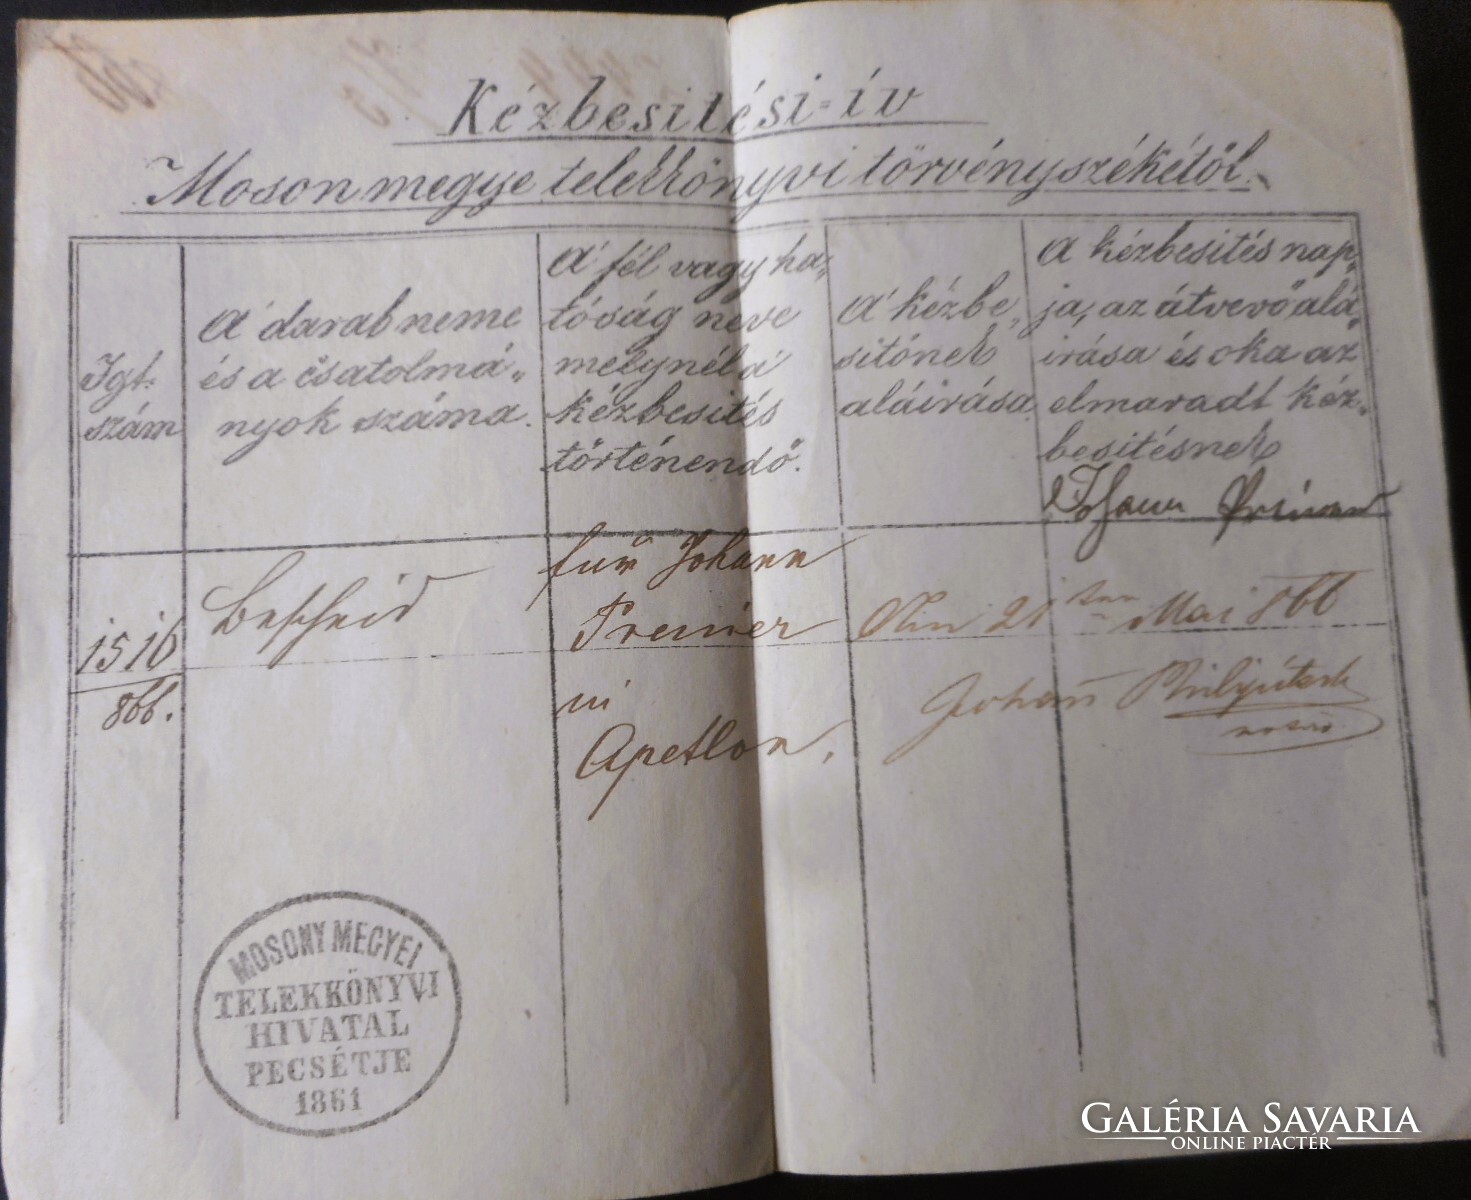 Kézbesitési-ív
Mosonmegye telekkönyvi törvényszékétől.
Igt.
szám
A' darab neme
és a csatolmá„
nyok száma.
A' fél vagy ha„
tóság neve
melynél a'
kézbesités
történendő.
A' kézbe„
sitőnek
aláirása
A kézbesités nap„
ja, az átvevő alá„
irása és oka az
elmaradt kéz„
besitésnek
Johann Preiner
1516
866.
Bescheid
für Johann
Preiner
in
Apetlon.
21ten Mai 866
Johañ
MOSONY MEGYEI
TELEKKÖNYVI
HIVATAL
PECSÉTJE
1861
GALÉRIA SAVARIA
ONLINE PIACTÉR